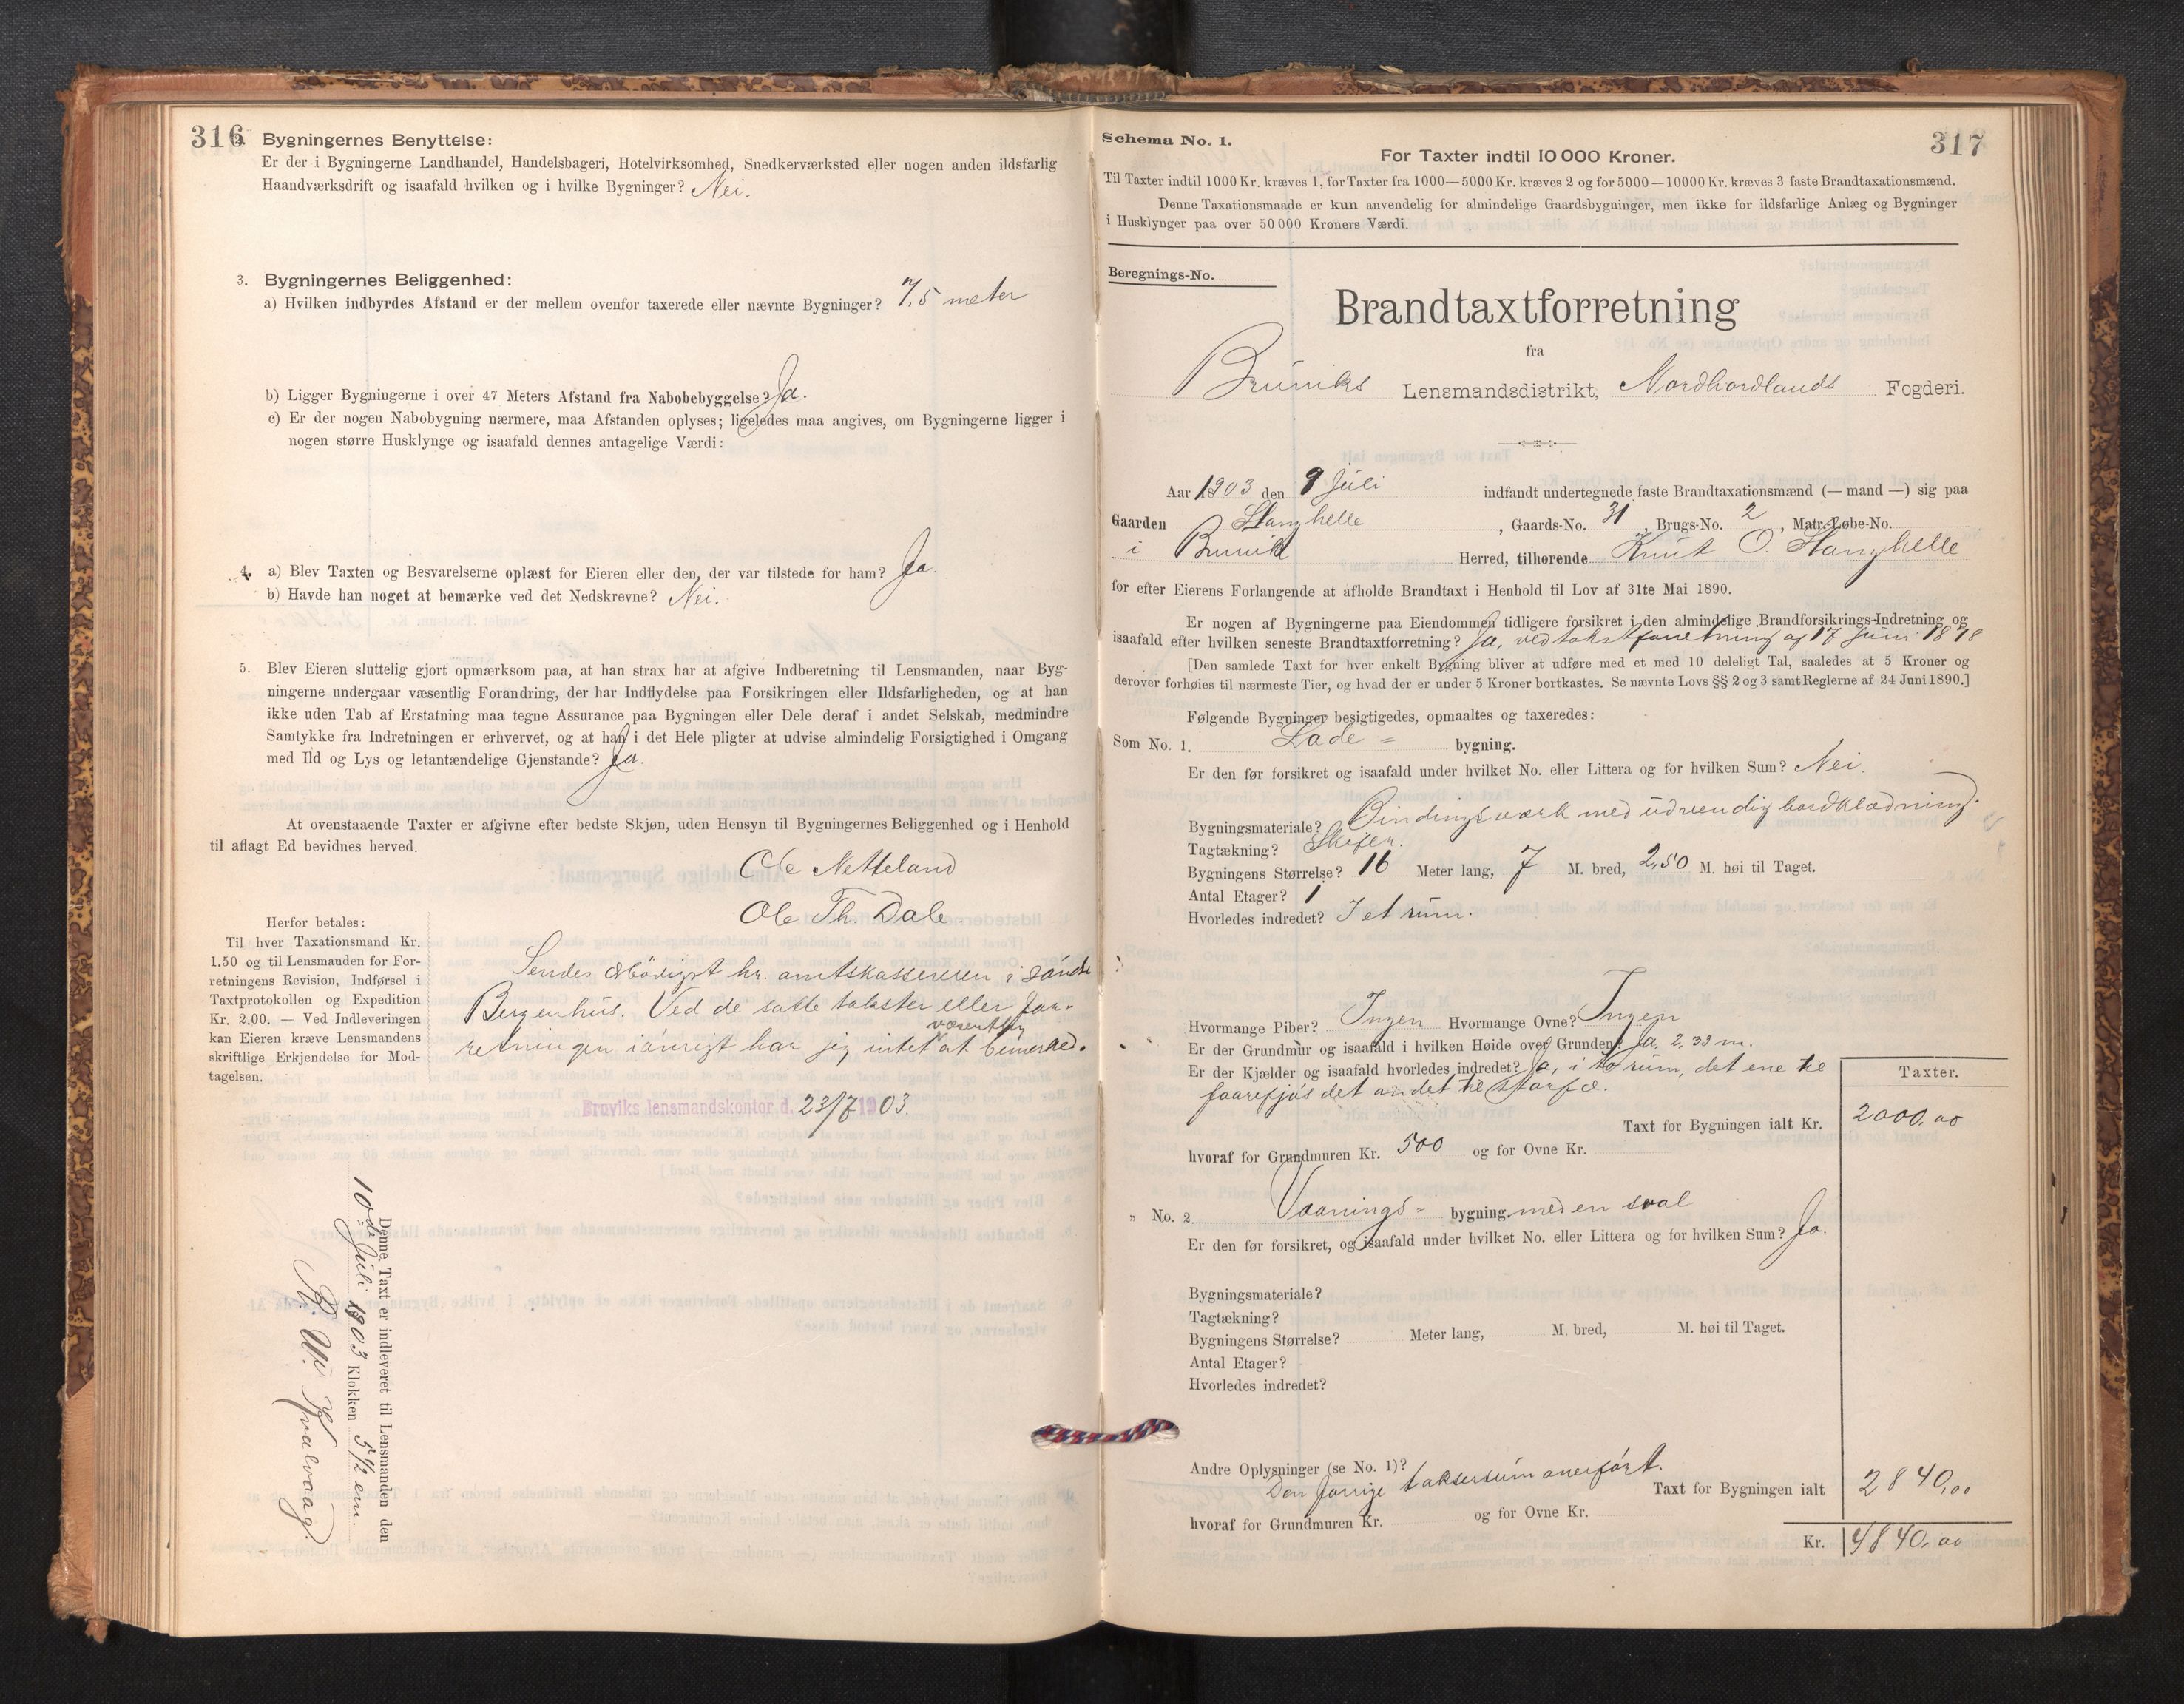 316
2. Bygningernes Benyttelse:
Er der i Bygningerne Landhandel, Handelsbageri, Hotelvirksomhed, Snedkerværksted eller nogen anden ildsfarlig
Haandværksdrift og isaafald hvilken og i hvilke Bygninger? Nei.
3. Bygningernes Beliggenhed:
a) Hvilken indbyrdes Afstand er der mellem ovenfor taxerede eller nævnte Bygninger? 7,5 meter
b) Ligger Bygningerne i over 47 Meters Afstand fra Nabobebyggelse? Ja.
c) Er der nogen Nabobygning nærmere, maa Afstanden oplyses; ligeledes maa angives, om Bygningerne ligger i
nogen større Husklynge og isaafald dennes antagelige Værdi:
4. a) Blev Taxten og Besvarelserne oplæst for Eieren eller den, der var tilstede for ham? Ja.
b) Havde han noget at bemærke ved det Nedskrevne? Nei.
5. Blev Eieren sluttelig gjort opmærksom paa, at han strax har at afgive Indberetning til Lensmanden, naar Byg-
ningerne undergaar væsentlig Forandring, der har Indflydelse paa Forsikringen eller Ildsfarligheden, og at han
ikke uden Tab af Erstatning maa tegne Assurance paa Bygningen eller Dele deraf i andet Selskab, medmindre
Samtykke fra Indretningen er erhvervet, og at han i det Hele pligter at udvise almindelig Forsigtighed i Omgang
med Ild og Lys og letantændelige Gjenstande? Ja.
At ovenstaaende Taxter er afgivne efter bedste Skjøn, uden Hensyn til Bygningernes Beliggenhed og i Henhold
til aflagt Ed bevidnes herved.
Ole Netteland
Ole Th. Dale.
Herfor betales:
Til hver Taxationsmand Kr.
1.50 og til Lensmanden for For-
retningens Revision, Indførsel i
Taxtprotokollen og Expedition
Kr. 2.00. — Ved Indleveringen
kan Eieren kræve Lensmandens
skriftlige Erkjendelse for Mod-
tagelsen.
Sendes hr. amtskassereren i söndre
Bergenhus. Ved de satte takster eller for-
retningen iövrigt har jeg intet væsentlig at bemerke.
Bruviks lensmandskontor d. 23/7 1903.
Denne Taxt er indleveret til Lensmanden den
10de Juli 1903 Klokken 5 1/2 em.
Kvalvaag.
Schema No. 1.
317
For Taxter indtil 10 000 Kroner.
Til Taxter indtil 1000 Kr. kræves 1, for Taxter fra 1000—5000 Kr. kræves 2 og for 5000—10000 Kr. kræves 3 faste Brandtaxationsmænd.
Denne Taxationsmaade er kun anvendelig for almindelige Gaardsbygninger, men ikke for ildsfarlige Anlæg og Bygninger
i Husklynger paa over 50 000 Kroners Værdi.
Beregnings-No.
Brandtaxtforretning
fra
Bruviks Lensmandsdistrikt, Nordhordlands Fogderi.
Aar 1903 den 9 Juli indfandt undertegnede faste Brandtaxationsmænd (— mand —) sig paa
Gaarden Stanghelle, Gaards-No. 31, Brugs-No. 2, Matr.-Løbe-No.
i Bruvik Herred, tilhørende Knut O. Stanghelle
for efter Eierens Forlangende at afholde Brandtaxt i Henhold til Lov af 31te Mai 1890.
Er nogen af Bygningerne paa Eiendommen tidligere forsikret i den almindelige Brandforsikrings-Indretning og
isaafald efter hvilken seneste Brandtaxtforretning? Ja, ved takstforretning af 17 Juni 1878
[Den samlede Taxt for hver enkelt Bygning bliver at udføre med et med 10 deleligt Tal, saaledes at 5 Kroner og
derover forhøies til nærmeste Tier, og hvad der er under 5 Kroner bortkastes. Se nævnte Lovs §§ 2 og 3 samt Reglerne af 24 Juni 1890.]
Følgende Bygninger besigtigedes, opmaaltes og taxeredes:
Som No. 1. Lade- bygning.
Er den før forsikret og isaafald under hvilket No. eller Littera og for hvilken Sum? Nei.
Bygningsmateriale? Bindingsværk med udvendig bordklædning.
Tagtækning? Skifer.
Bygningens Størrelse? 16 Meter lang, 7 M. bred, 2,50 M. høi til Taget.
Antal Etager? 1
Hvorledes indredet? I et rum.
Hvormange Piber? Ingen Hvormange Ovne? Ingen
Er der Grundmur og isaafald i hvilken Høide over Grunden? Ja, 2,33 m.
Er der Kjælder og isaafald hvorledes indredet? Ja, i to rum, det ene til
faarefjøs det andet til storfæ.
Taxter.
Taxt for Bygningen ialt Kr. 2000,00
hvoraf for Grundmuren Kr. 500 og for Ovne Kr.
" No. 2. Vaanings- bygning. med en sval
Er den før forsikret, og isaafald under hvilket No. eller Littera og for hvilken Sum? Ja.
Bygningsmateriale?
Tagtækning?
Bygningens Størrelse? Meter lang, M. bred, M. høi til Taget.
Antal Etager?
Hvorledes indredet?
Andre Oplysninger (se No. 1)?
Den forrige taksersum overfört.
Taxt for Bygningen ialt 2840,00
hvoraf for Grundmuren Kr. og for Ovne Kr.
Kr. 4840,00